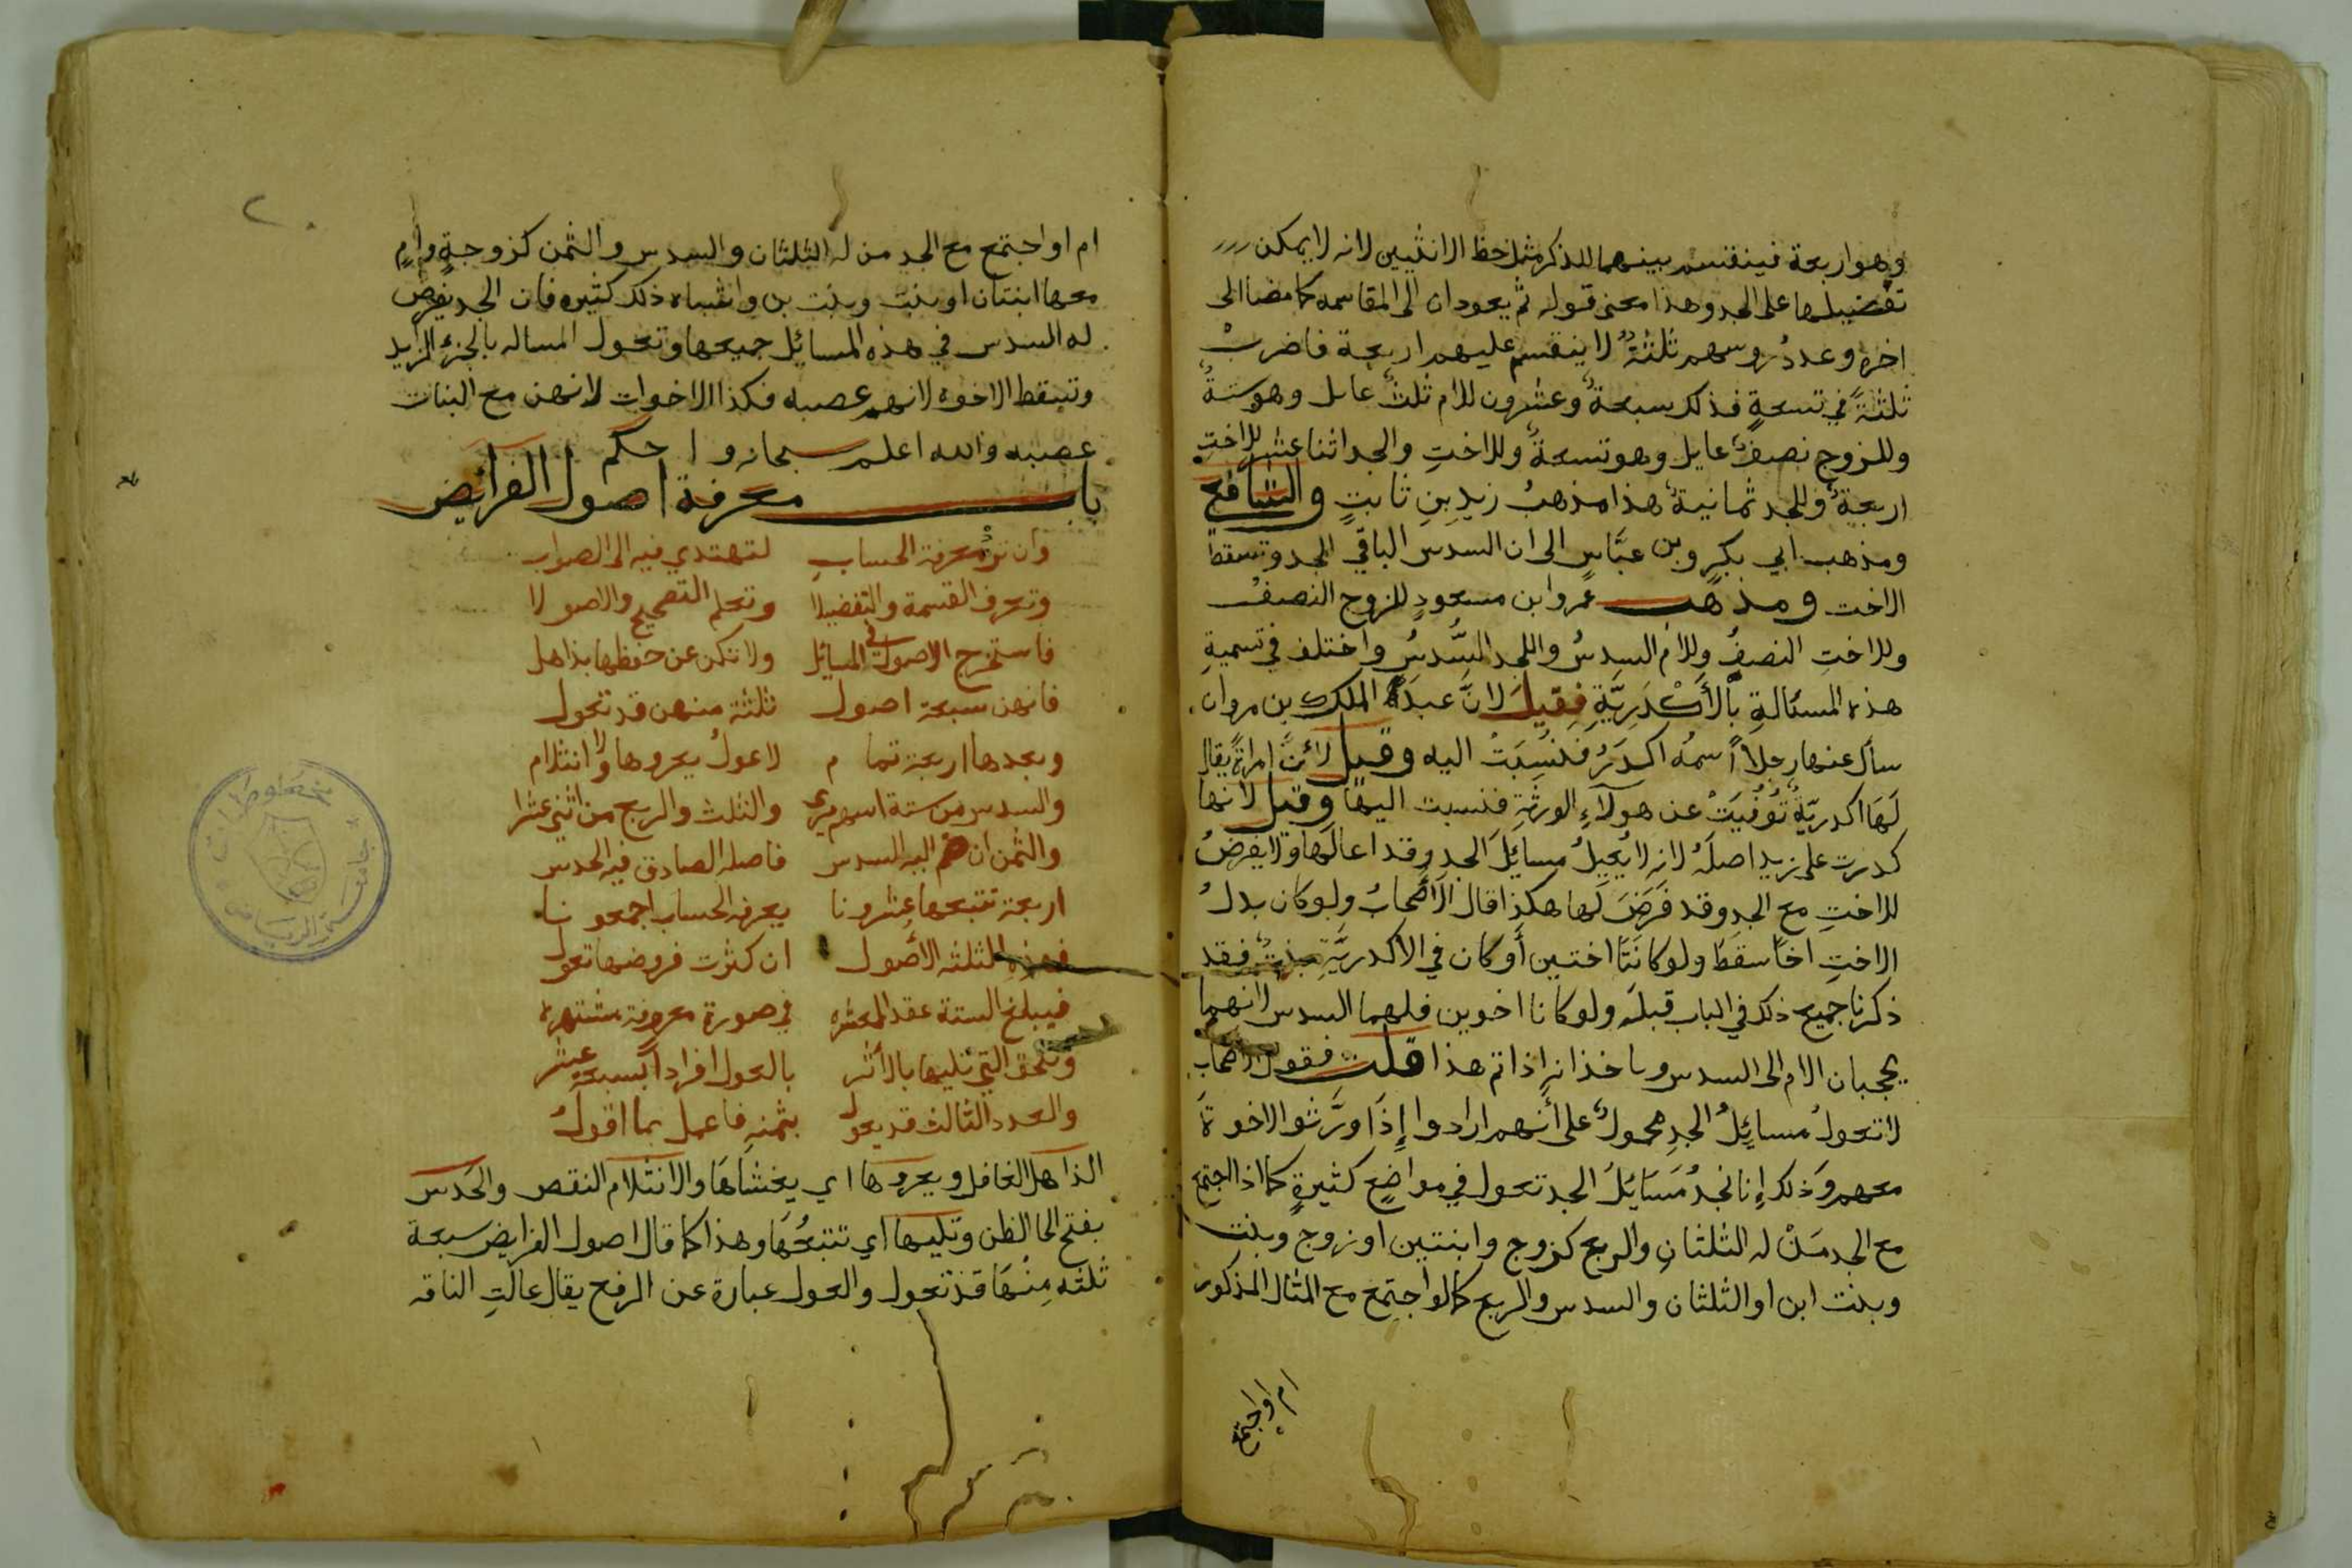 وهو اربعة فينقسم بينهما للذكر مثل حظ الانثيين لانه لا يمكن
تفضيلها على الجد وهذا معنى قوله ثم يعودان الى المقاسمه كما مضا الى
اخره وعددُ روسهم ثلثةٌ لا ينقسم عليهم اربعة فاضربْ
ثلثةً في تسعةٍ فذلك سبعةٌ وعشرون للام ثلثٌ عايل وهو ستةٌ
وللزوج نصفٌ عايل وهو تسعةٌ وللاختِ والجد اثنا عشر للاختِ
اربعةٌ وللجد ثمانيةٌ هذا مذهبُ زيدِ بنِ ثابتٍ والشافعي
ومذهب ابي بكرٍ وبن عبَّاسٍ الى ان السدس الباقي للجد وتسقط
الاخت ومذهب عمر وابن مسعودٍ للزوج النصفُ
وللاختِ النصفُ وللام السدسُ واللجد السُّدسُ واختلف في تسميةِ
هذه المسئالةِ بالأَكْدَرِيَّةِ فقيلَ لانَّ عبدَ الملك بن مروان
سأل عنها رجلاً اسمُه اكدَرُ فنُسِبَتْ اليه وقيل لأنَّ امراةً يقال
لَهَا اكدريّةٌ تُوُفِّيَتْ عن هولآءِ الورثةِ فنسبت اليها وقيل لانها
كدرت على زيد اصلَهُ لانه لا يُعِيلُ مسايلَ الجدِ وقد اعالَها ولا يفرضُ
للاختِ مع الجدِ وقد فَرَضَ لَها هكذا قال الأصْحابُ ولو كان بدلُ
الاختِ اخاً سقط ولو كانَتَا اختين أو كان في الاكدريَّةِ بنتٌ فقد
ذكرنا جميع ذلك في الباب قبلَه ولو كانا اخوين فلهما السدس لانهما
يحجبان الام الى السدس وياخذانه اذا تم هذا قلت فقول الاصحاب
لا تعولُ مسايلُ الجدِ محمولٌ على أنهم ارادوا إِذَا ورَّثوا الاخوةَ
معهم وَذلك إنا نجدُ مَسَايلَ الجد تعول في مواضعٍ كثيرةٍ كما اذا اجتمع
مع الجد مَنْ له الثلثانِ والربع كزوج وابنتين او زوج وبنت
وبنت ابن او الثلثان والسدس والربع كما لو اجتمع مع المثال المذكور
ام او اجتمع
ام او اجتمع مع الجد من له الثلثان والسدس والثمن كزوجةٍ وامٍ
معها ابنتان او بنت وبنت بن واشباه ذلك كثيره فان الجد يفرض
له السدس في هذه المسائل جميعها وتعول المساله بالجزء الزايد
وتسقط الاخوه لانهم عصبه فكذا الاخوات لانهن مع البنات
عصبه والله اعلم سبحانه واحكم
باب معرفة اصول الفرائض
وان ترد معرفة الحسابِ لتهتدي فيه الى الصواب
وتعرف القسمة والتفضيلا وتعلم التصحيح والاصولا
فاستخرج الاصول في المسائل ولا تكن عن حفظها بذاهل
فانهن سبعة اصول ثلثة منهن قد تعول
وبعدها اربعة تمام لا عولُ يعروها ولا انثلام
والسدس من ستة اسهم يرى والثلث والربع من اثني عشرا
والثمن ان ضم اليه السدس فاصله الصادق فيه الحدس
اربعة تتبعها عشرونا يعرفه الحساب اجمعونا
فهذه الثلثه الأصول ان كثرت فروضها تعول
فيبلغ الستة عقد العشره في صورة معروفة مشتهره
وتلحق التي تليها بالأثر بالعول افراداً لسبعة عشر
والعدد الثالث قد يعول بثمنهِ فاعمل بما اقولُ
الذاهل الغافل ويعروها اي يغشاهَا والانثلام النقص والحَدس
بفتح الحا الظن وتليها اي تتبعُهَا وهذا كما قال اصول الفرايض سبعة
ثلثه مِنْهَا قد تعول والعول عبارة عن الرفع يقال عالتِ الناقه
مخطوطات
جامعة الرياض